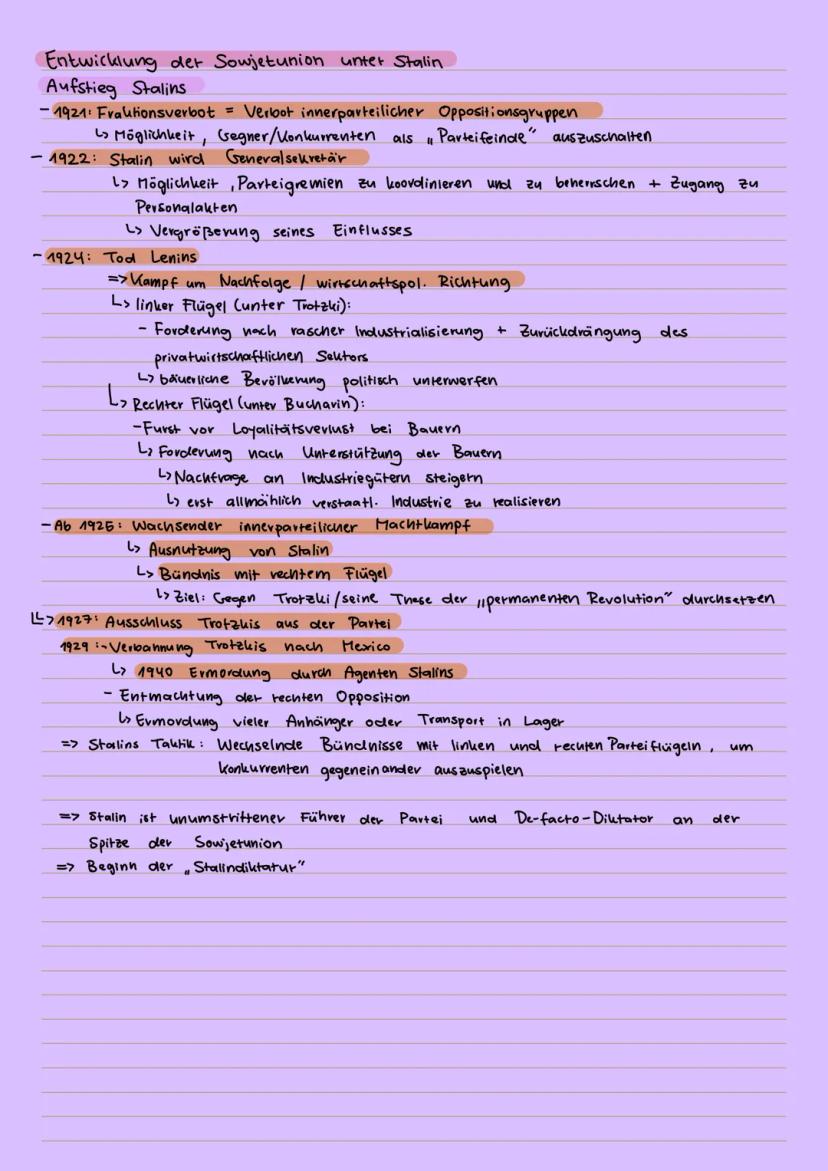 Entwicklung der Sowjetunion unter Stalin
Aufstieg Stalins
- 1921: Fraktionsverbot = Verbot innerparteilicher Oppositionsgruppen
↳ Möglichkeit, Gegner/Konkurrenten als „Parteifeinde" auszuschalten
- 1922: Stalin wird Generalsekretär
↳ Möglichkeit, Parteigremien zu koordinieren und zu beherrschen + Zugang zu
Personalakten
↳ Vergrößerung seines Einflusses
- 1924: Tod Lenins
=> Kampf um Nachfolge / wirtschaftspol. Richtung
↳ linker Flügel (unter Trotzki):
- Forderung nach rascher Industrialisierung + Zurückdrängung des
privatwirtschaftlichen Sektors
↳ bäuerliche Bevölkerung politisch unterwerfen
↳ Rechter Flügel (unter Bucharin):
- Furst vor Loyalitätsverlust bei Bauern
↳ Forderung nach Unterstützung der Bauern
↳ Nachfrage an Industriegütern steigern
↳ erst allmählich verstaatl. Industrie zu realisieren
- Ab 1925: Wachsender innerparteilicher Machtkampf
↳ Ausnutzung von Stalin
↳ Bündnis mit rechtem Flügel
↳ Ziel: Gegen Trotzki/seine These der „permanenten Revolution" durchsetzen
↳ 1927: Ausschluss Trotzkis aus der Partei
1929: - Verbannung Trotzkis nach Mexico
↳ 1940 Ermordung durch Agenten Stalins
- Entmachtung der rechten Opposition
↳ Ermordung vieler Anhänger oder Transport in Lager
=> Stalins Taktik: Wechselnde Bündnisse mit linken und rechten Parteiflügeln, um
Konkurrenten gegeneinander auszuspielen
=> Stalin ist unumstrittener Führer der Partei und De-facto-Diktator an der
Spitze der Sowjetunion
=> Beginn der „Stalindiktatur"